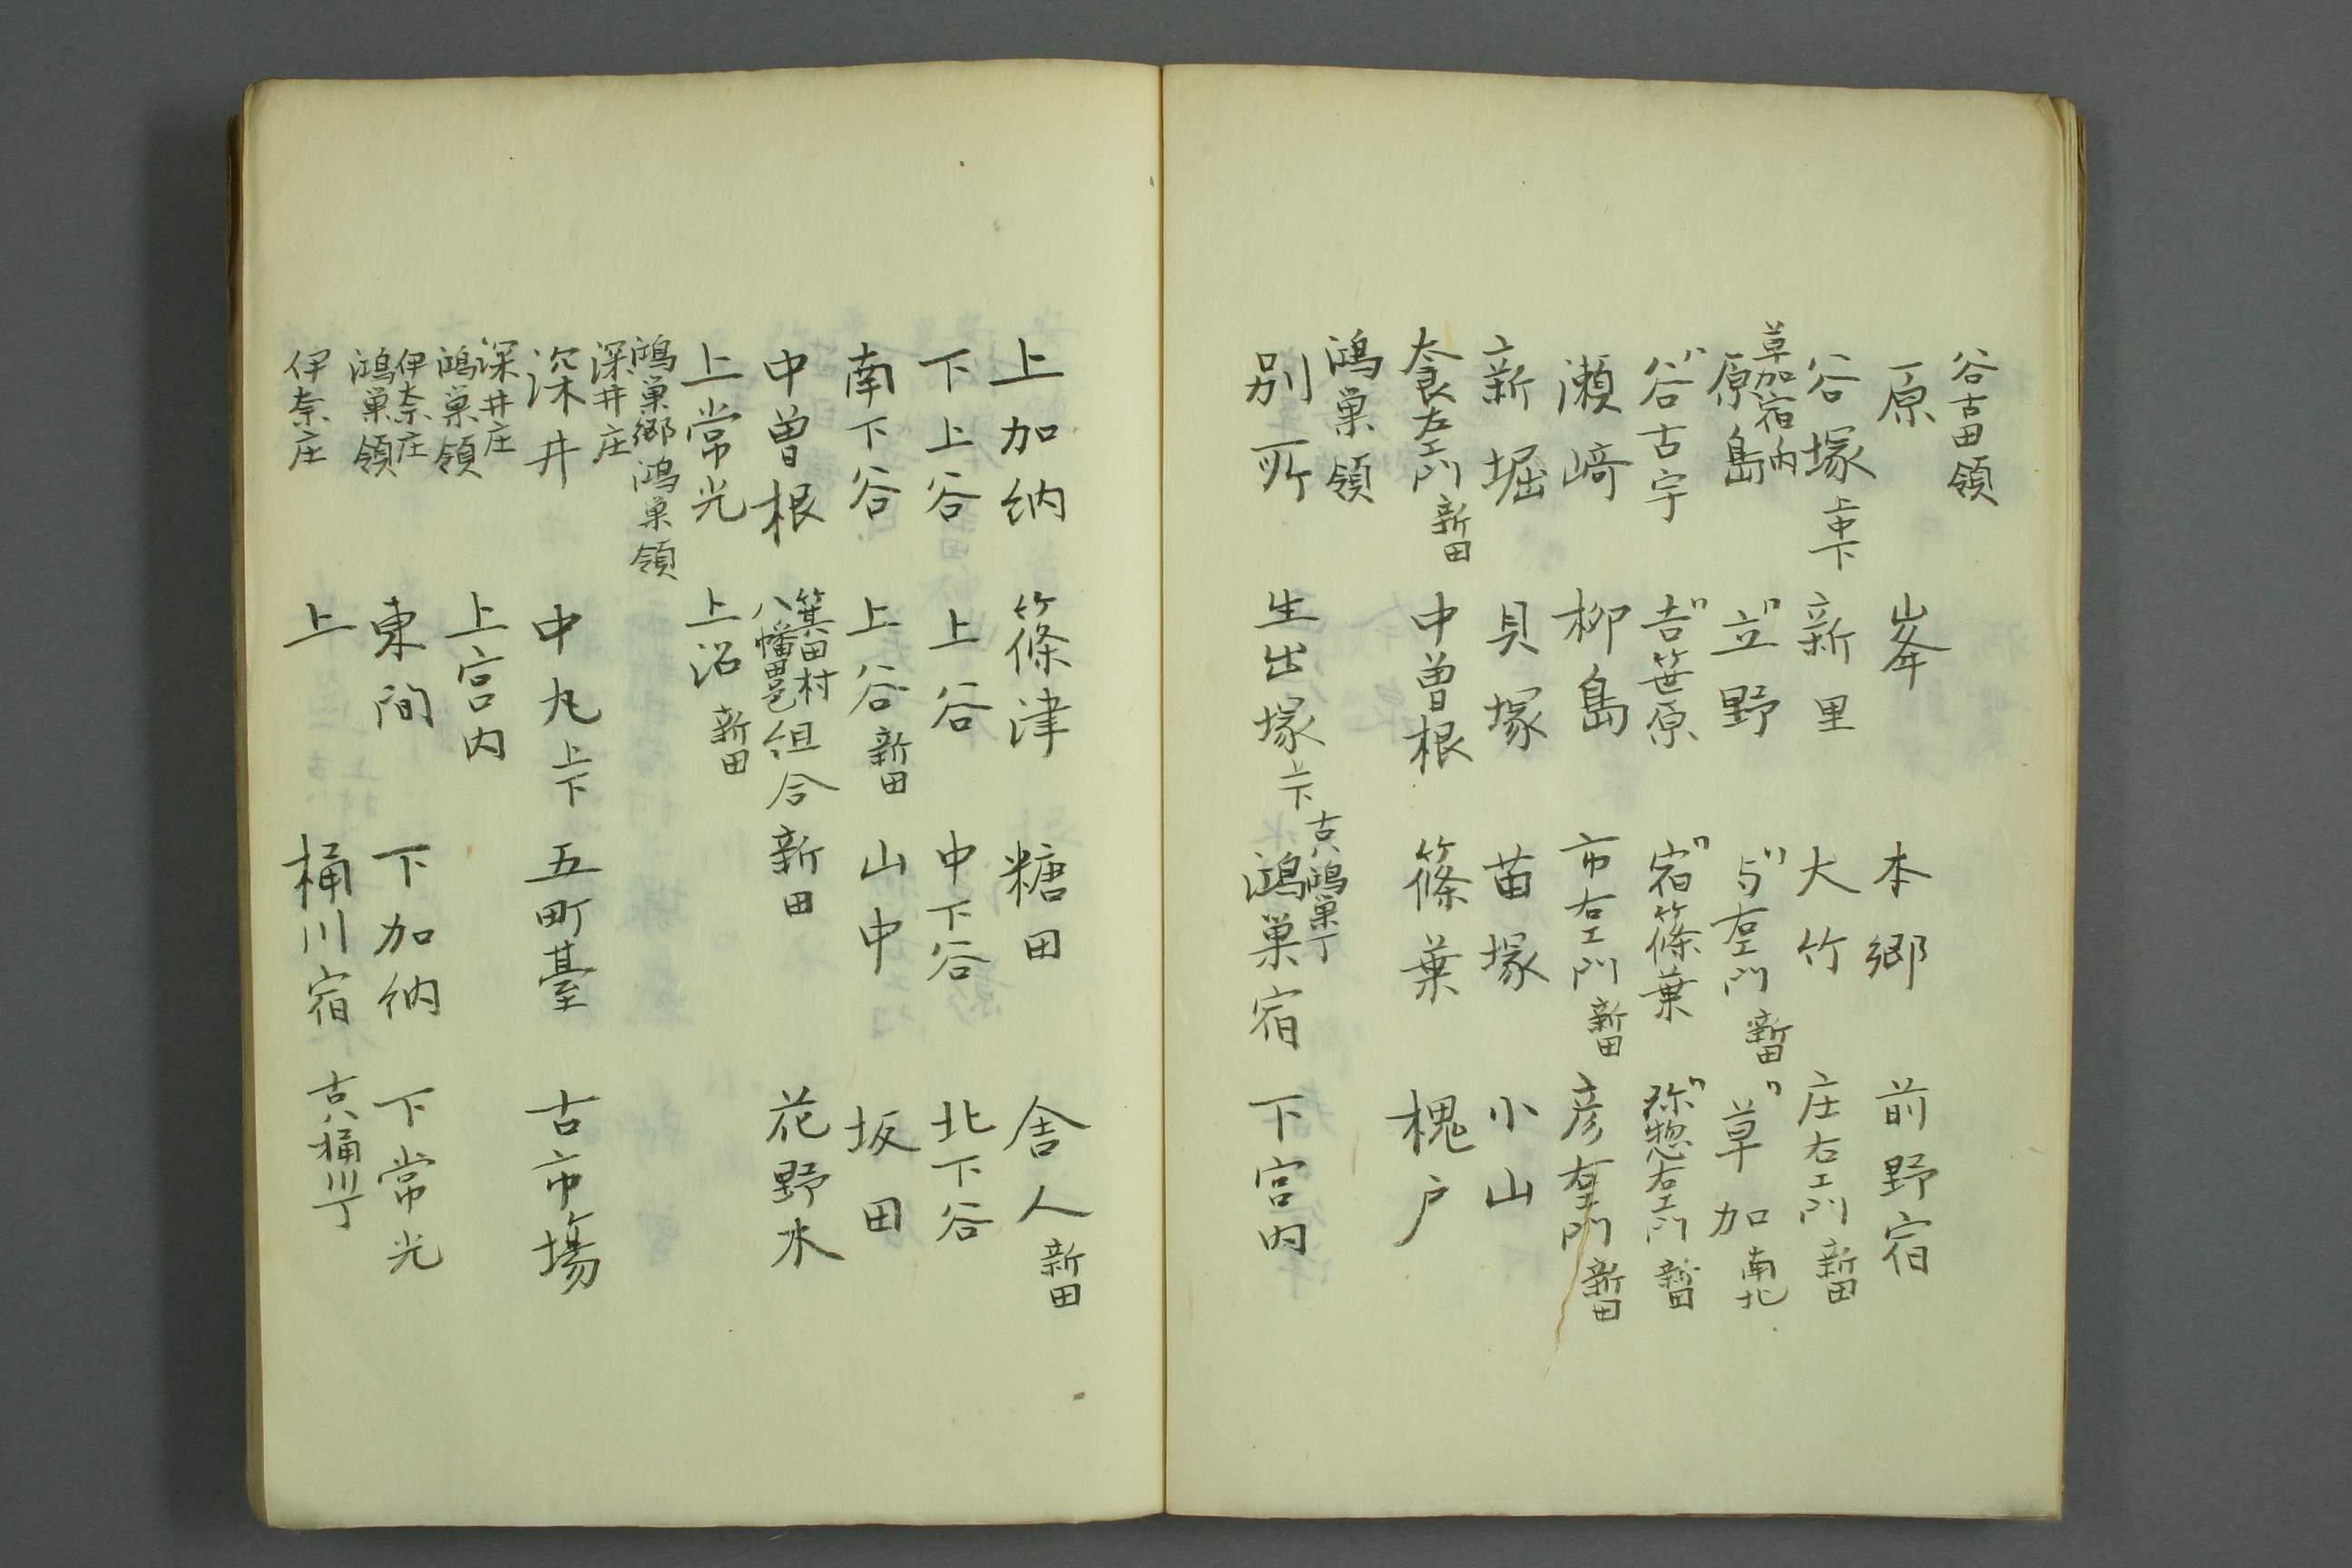 谷古田領
原 峯 本郷 前野宿
谷塚上中下 新里 大竹 庄右エ門新田
草加宿内
原島 〃立野 〃与右エ門新田 〃草加南北
〃谷古宇 〃吉笹原 〃宿篠葉 〃弥惣右エ門新田
瀬﨑 柳島 市右エ門新田 彦右エ門新田
新堀 貝塚 苗塚 小山
左エ門新田 中曽根 篠葉 槐戸
鴻巣領
古ハ鴻巣丁
別所 生出塚上下 鴻巣宿 下宮内
上加納 篠津 糖田 舎人新田
下上谷 上谷 中下谷 北下谷
南下谷 上谷新田 山中 坂田
中曽根 箕田村八幡田邑組合新田 花野木
上常光 上沼新田
鴻巣郷鴻巣領
深井庄
深井 中丸上下 五町臺 古市場
深井庄
鴻巣領 上宮内
伊奈庄
鴻巣領 東間 下加納 下常光
伊奈庄 上 桶川宿 古ハ桶川丁